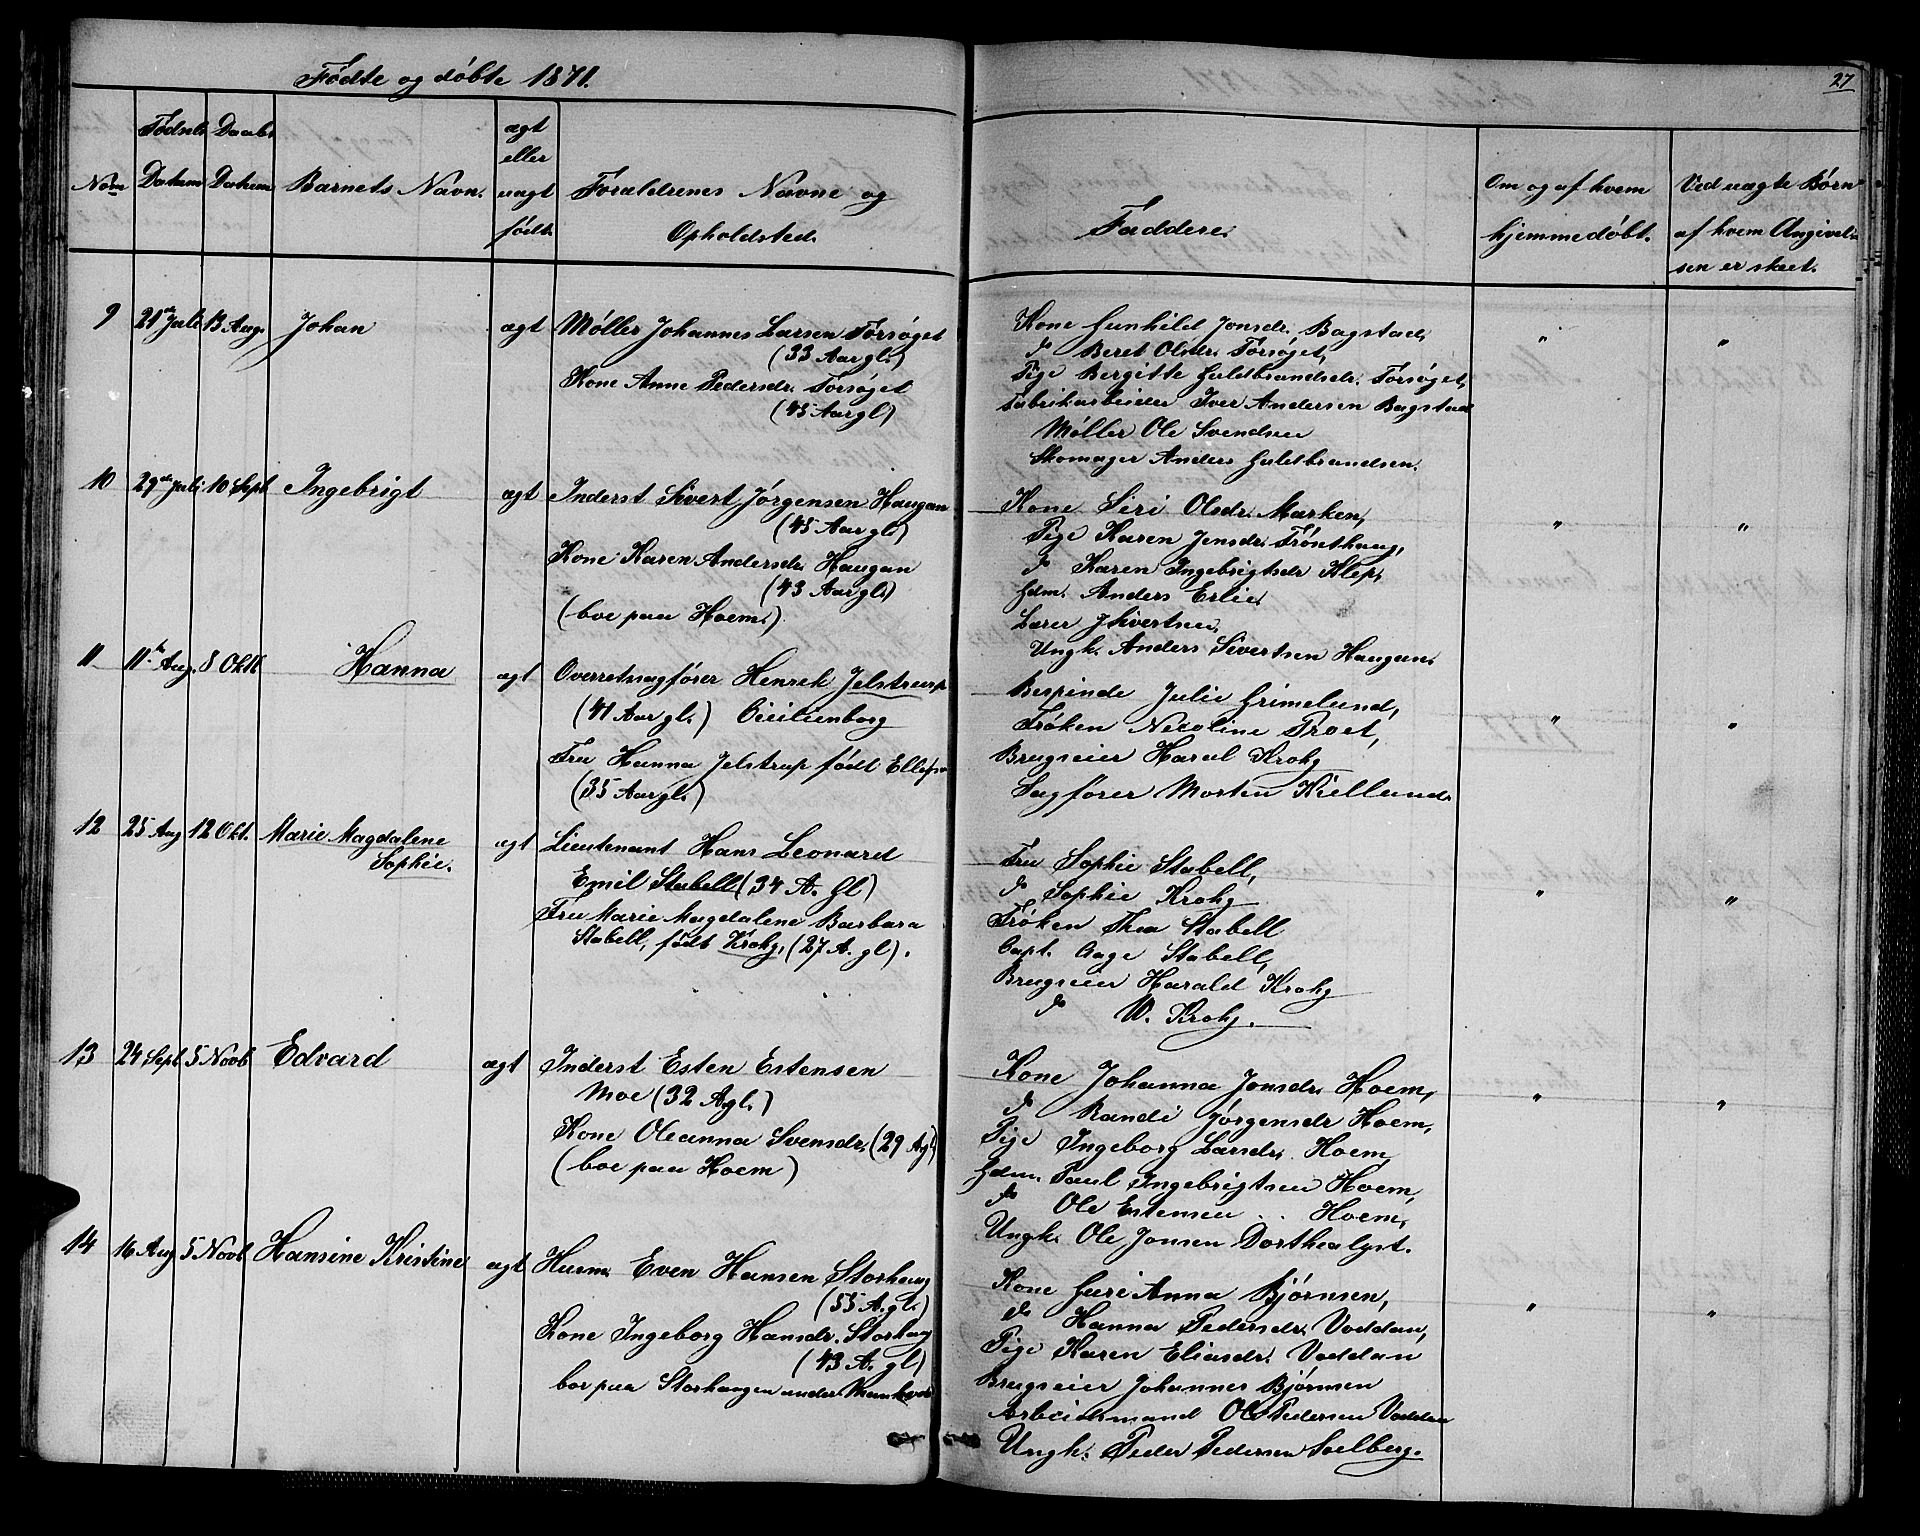 Fødte og døbte 1871.
27
Nom
Fødsels Datum
Daabs Datum
Barnets Navn.
ægt eller uægt født.
Forældrenes Navne og Opholdsted.
Faddere.
Om og af hvem hjemmedøbt.
Ved uægte Børn af hvem Angivelsen er skeet.
9 21de Juli 13 Aug. Johan ægt Møller Johannes Larsen Forsøget
(33 Aar gl.)
Kone Anne Pedersdr. Forsøget
(45 Aar gl)
Kone Gunhild Jonsdr. Bagstad,
do Beret Olsdr. Forsøget,
Pige Bergitte Guldbrandsdr. Forsøget,
Fabrikarbeider Iver Andersen Bagstad
Møller Ole Svendsen
Skomager Anders Guldbrandsen.
" "
10 29de Juli 10 Sept Ingebrigt ægt Inderst Sivert Jørgensen Haugan
(45 Aar gl.)
Kone Karen Andersdr. Haugan
(43 Aar gl.)
(boe paa Hoem.)
Kone Siri Olsdr. Marken,
Pige Karen Jensdr. Trønthaug,
do Karen Ingebrigtsdr Klep,
Gdm. Anders Erlie.
Lærer J Sivertsen,
Ungk. Anders Sivertsen Haugan.
" "
11 11te Aug. 8 Oktb. Hanna ægt Overretsagfører Henrik Jelstrup
(41 Aar gl.) Cicilienborg
Fru Hanna Jelstrup født Ellefsen
(35 Aar gl.)
Bespinde Julie Grimelund,
Frøken Nicoline Troet,
Brugseier Haral Krohg
Sagfører Morten Kiellund.
" "
12 25 Aug 12 Okt. Marie Magdalene
Sophie.
ægt Lieutenant Hans Leonard
Emil Stabell (34 A. gl)
Fru Marie Magdalene Barbara
Stabell, født Krohg, (27 A. gl).
Fru Sophie Stabell,
do Sophie Krohg
Frøken Thea Stabell
Capt. Aage Stabell,
Brugseier Harald Krohg
do W. Krohg.
" "
13 24 Sept 5 Novb Edvard ægt Inderst Esten Estensen
Moe (32 A gl.)
Kone Oleanna Svensdr. (29 A gl)
(boe paa Hoem)
Kone Johanna Jonsdr. Hoem,
do Randi Jørgensdr Hoem,
Pige Ingeborg Larsdr. Hoem,
Gdm. Paul Ingebrigtsen Hoem,
do Ole Estensen . . Hoem,
Ungk. Ole Jonsen Dorthealyst.
" "
14 16 Aug 5 Novb Hansine Kristine ægt Husm. Even Hansen Storhaug
(55 A. gl.)
Kone Ingeborg Hansdr. Storhaug
(43 A. gl)
bor paa Storhaugen under
Kone Guri Anna Bjørnsen,
do Hanna Pedersdr. Voddan,
Pige Karen Eliasdr. Voddan
Brugseier Johannes Bjørnsen
Arbeidsmand Ole Pedersen Voddan
Ungk. Peder Pedersen Solberg.
" "